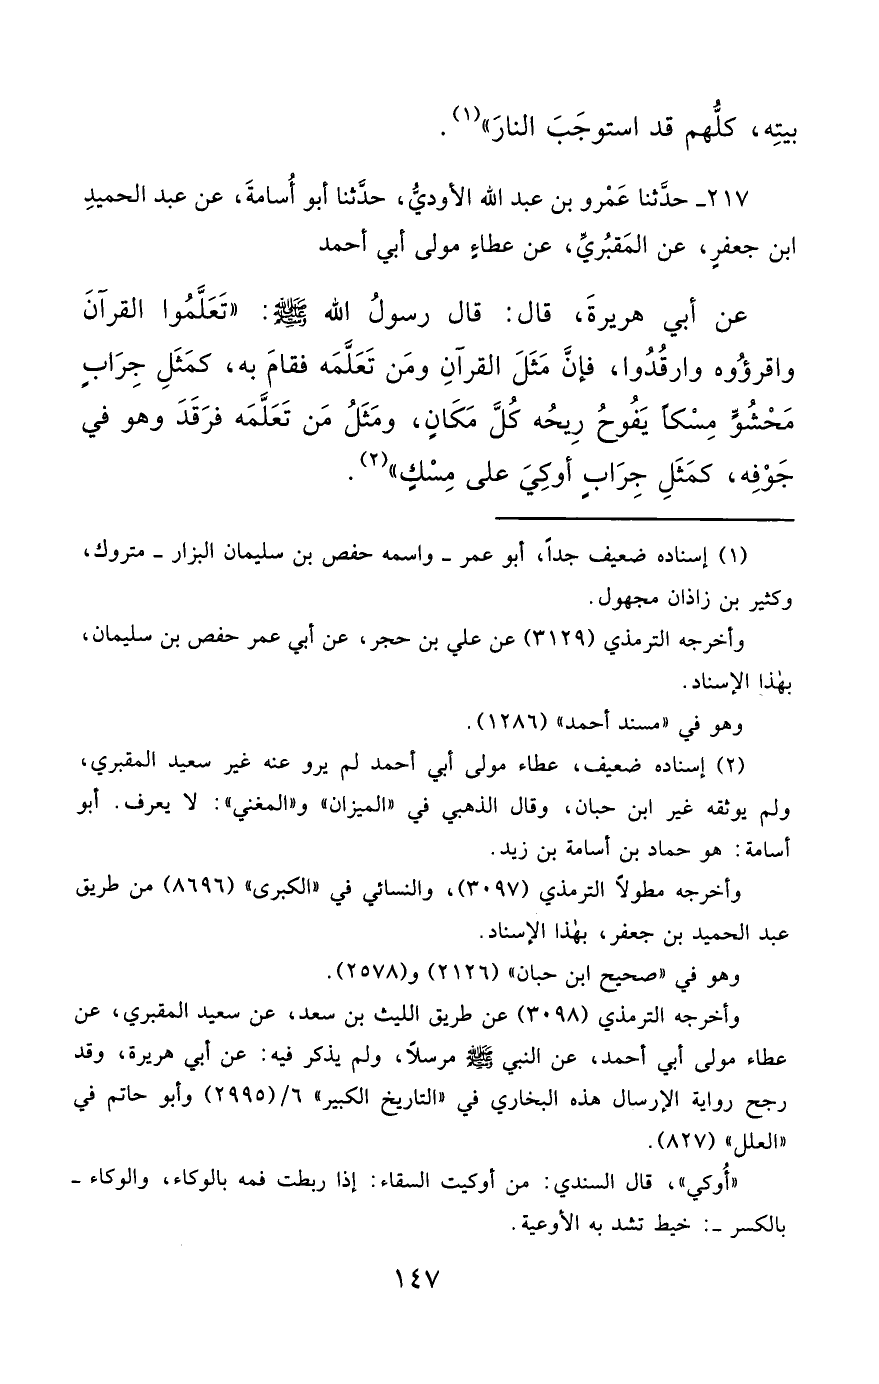 بيتِه، كلُّهم قد استوجَبَ النارَ»(١).
٢١٧ـ حدَّثنا عَمْرو بن عبد الله الأوديُّ، حدَّثنا أبو أُسامةَ، عن عبد الحميدِ
ابن جعفرٍ، عن المَقبُريِّ، عن عطاءٍ مولى أبي أحمد
عن أبي هريرةَ، قال: قال رسولُ الله ﷺ: «تَعَلَّمُوا القرآنَ
واقرؤُوه وارقُدُوا، فإنَّ مَثَلَ القرآنِ ومَن تَعَلَّمه فقامَ به، كمَثَلِ جِرَابٍ
مَحْشُوٍّ مِسْكاً يَفُوحُ رِيحُه كُلَّ مَكَانٍ، ومَثَلُ مَن تَعَلَّمَه فرَقَدَ وهو في
جَوْفِه، كمَثَلِ جِرَابٍ أوكِيَ على مِسْكٍ»(٢).
(١) إسناده ضعيف جداً، أبو عمر ـ واسمه حفص بن سليمان البزار ـ متروك،
وكثير بن زاذان مجهول.
وأخرجه الترمذي (٣١٢٩) عن علي بن حجر، عن أبي عمر حفص بن سليمان،
بهٰذا الإسناد.
وهو في «مسند أحمد» (١٢٨٦).
(٢) إسناده ضعيف، عطاء مولى أبي أحمد لم يرو عنه غير سعيد المقبري،
ولم يوثقه غير ابن حبان، وقال الذهبي في «الميزان» و«المغني»: لا يعرف. أبو
أسامة: هو حماد بن أسامة بن زيد.
وأخرجه مطولاً الترمذي (٣٠٩٧)، والنسائي في «الكبرى» (٨٦٩٦) من طريق
عبد الحميد بن جعفر، بهٰذا الإسناد.
وهو في «صحيح ابن حبان» (٢١٢٦) و(٢٥٧٨).
وأخرجه الترمذي (٣٠٩٨) عن طريق الليث بن سعد، عن سعيد المقبري، عن
عطاء مولى أبي أحمد، عن النبي ﷺ مرسلاً، ولم يذكر فيه: عن أبي هريرة، وقد
رجح رواية الإرسال هذه البخاري في «التاريخ الكبير» ٦/(٢٩٩٥) وأبو حاتم في
«العلل» (٨٢٧).
«أُوكي»، قال السندي: من أوكيت السقاء: إذا ربطت فمه بالوكاء، والوكاء ـ
بالكسر ـ: خيط تشد به الأوعية.
١٤٧